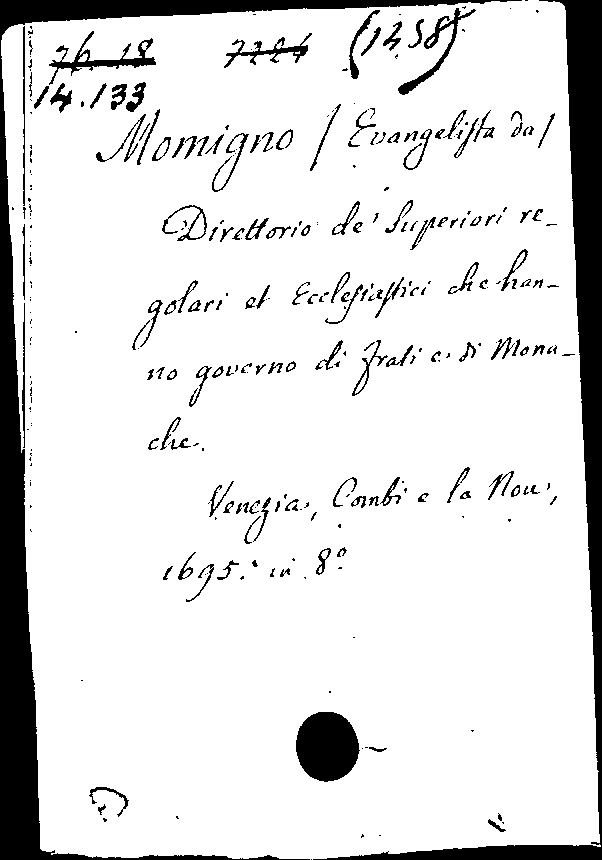 76.18 7224 (1258)
14.133
Momigno / Evangelista da /
Direttorio de' Superiori re-
golari et Ecclesiastici che han-
no governo di frati e di Mona-
che.
Venezia, Combi e la Nou,
1695. in 8º